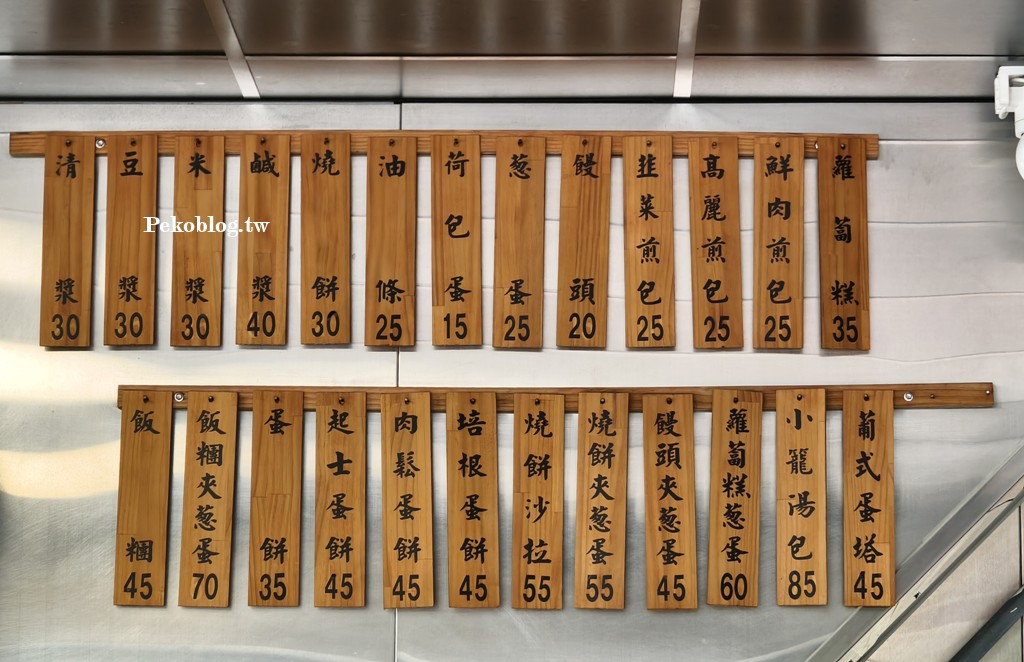 清漿30
豆漿30
米漿30
鹹漿40
燒餅30
油條25
荷包蛋15
葱蛋25
饅頭20
韭菜煎包25
高麗煎包25
鮮肉煎包25
蘿蔔糕35
Pekoblog.tw
飯糰45
飯糰夾葱蛋70
蛋餅35
起士蛋餅45
肉鬆蛋餅45
培根蛋餅45
燒餅沙拉55
燒餅夾葱蛋55
饅頭夾葱蛋45
蘿蔔糕葱蛋60
小籠湯包85
葡式蛋塔45